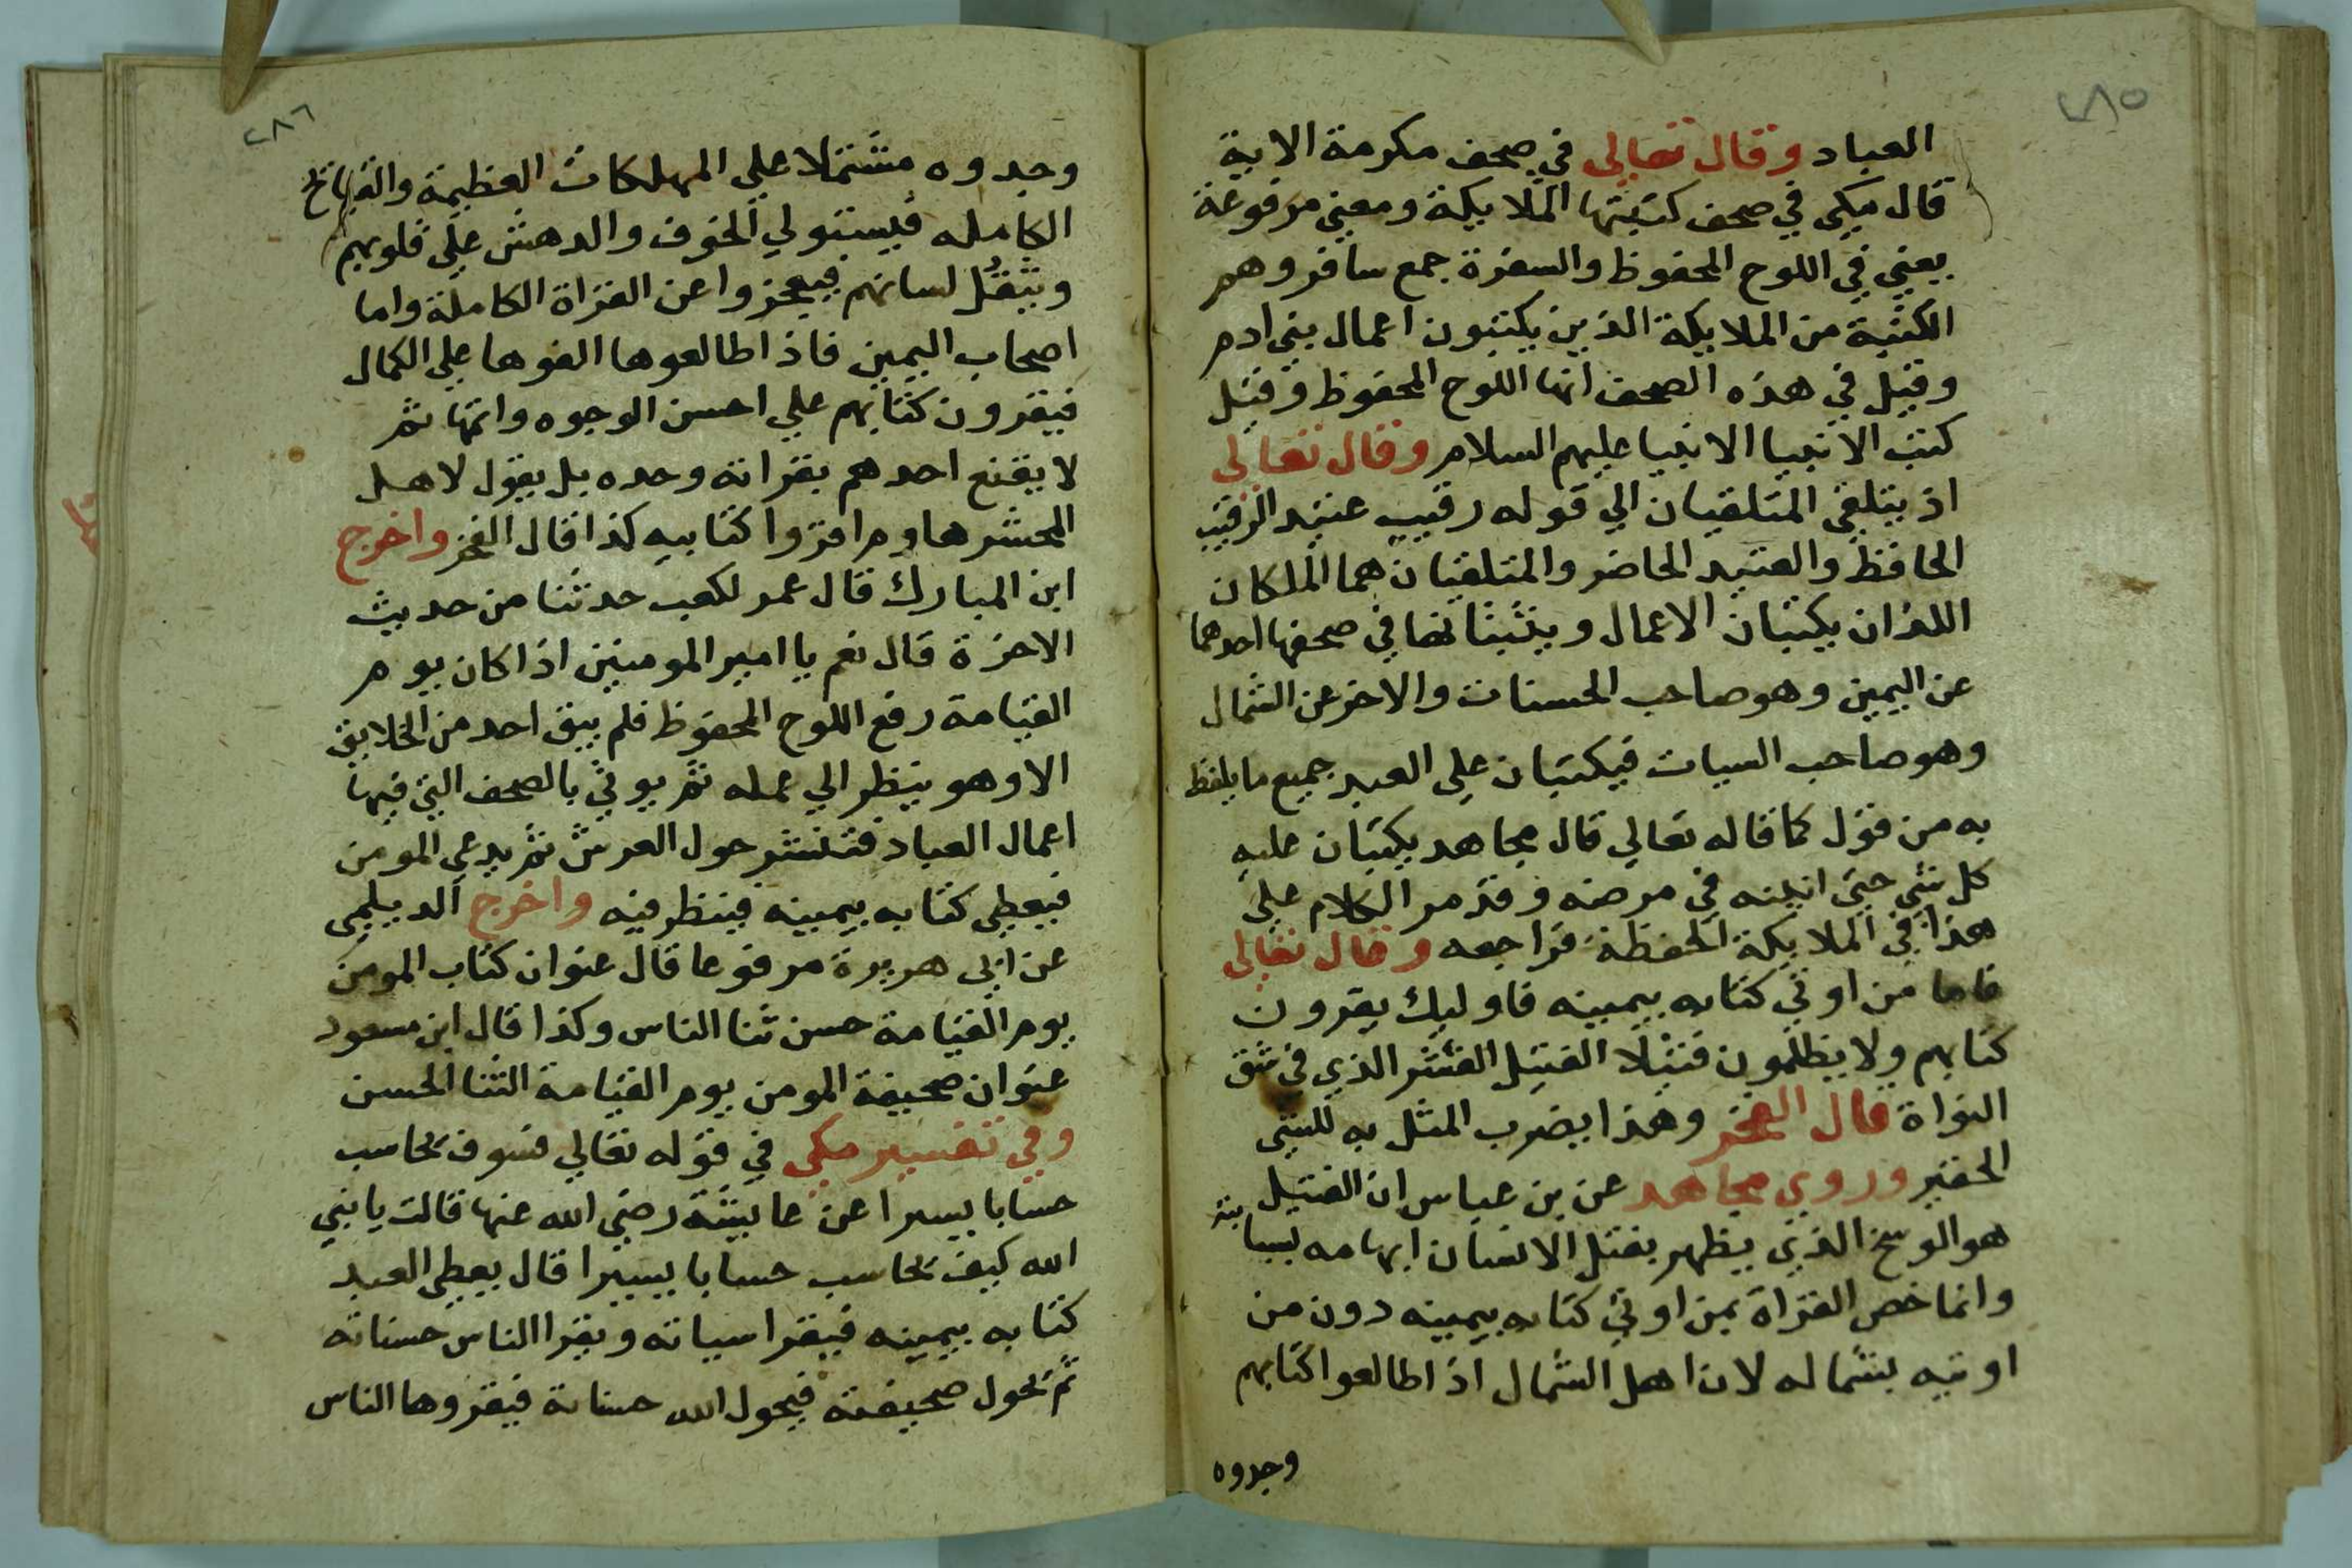 ٢٨٥
العباد وقال تعالى في صحف مكرمة الاية
قال مكي في صحف كتبتها الملايكة ومعني مرفوعة
يعني في اللوح المحفوظ والسفرة جمع سافر وهم
الكتبة من الملايكة الذين يكتبون اعمال بني ادم
وقيل في هذه الصحف انها اللوح المحفوظ وقيل
كتب الانبيا الانبيا عليهم السلام وقال تعالى
اذ يتلقي المتلقيان الي قوله رقيب عتيد الرقيب
الحافظ والعتيد الحاضر والمتلقيان هما الملكان
اللذان يكتبان الاعمال ويثبتانها في صحفها احدهما
عن اليمين وهو صاحب الحسنات والاخر عن الشمال
وهو صاحب السيات فيكتبان علي العبد جميع ما يلفظ
به من قول كما قاله تعالي قال مجاهد يكتبان عليه
كل شي حتي انينه في مرضه وقد مر الكلام علي
هذا في الملايكة الحفظة فراجعه وقال تعالى
فاما من اوتي كتابه بيمينه فاوليك يقرون
كتابهم ولا يظلمون فتيلا الفتيل القشر الذي في شق
النواة قال الفخر وهذا يضرب المثل به للشي
الحقير وروي مجاهد عن بن عباس ان الفتيل
هو الوسخ الذي يظهر بفتل الانسان ابهامه بسبابته
وانما خص القراة بمن اوتي كتابه بيمينه دون من
اوتيه بشماله لان اهل الشمال اذا طالعوا كتابهم
وجدوه
٢٨٦
وجدوه مشتملا علي المهلكات العظيمة والقبائح
الكامله فيستولي الخوف والدهش علي قلوبهم
ويثقل لسانهم فيعجزوا عن القراة الكاملة واما
اصحاب اليمين فاذا طالعوها الفوها علي الكمال
فيقرون كتابهم علي احسن الوجوه واتمها ثم
لا يقنع احدهم بقراته وحده بل يقول لاهل
المحشر هاوم اقروا كتابيه كذا قال الفخر واخرج
ابن المبارك قال عمر لكعب حدثنا من حديث
الاخرة قال نعم يا امير المومنين اذا كان يوم
القيامة رفع اللوح المحفوظ فلم يبق احد من الخلايق
الا وهو ينظر الي عمله ثم يوتي بالصحف التي فيها
اعمال العباد فتنشر حول العرش ثم يدعي المومن
فيعطي كتابه بيمينه فينظر فيه واخرج الديلمي
عن ابي هريرة مرفوعا قال عنوان كتاب المومن
يوم القيامة حسن ثنا الناس وكذا قال ابن مسعود
عنوان صحيفة المومن يوم القيامة الثنا الحسن
وفي تفسير مكي في قوله تعالي فسوف يحاسب
حسابا يسيرا عن عايشة رضي الله عنها قالت يا نبي
الله كيف يحاسب حسابا يسيرا قال يعطي العبد
كتابه بيمينه فيقرا سياته ويقرا الناس حسناته
ثم يحول صحيفته فيحول الله حسناته فيقروها الناس